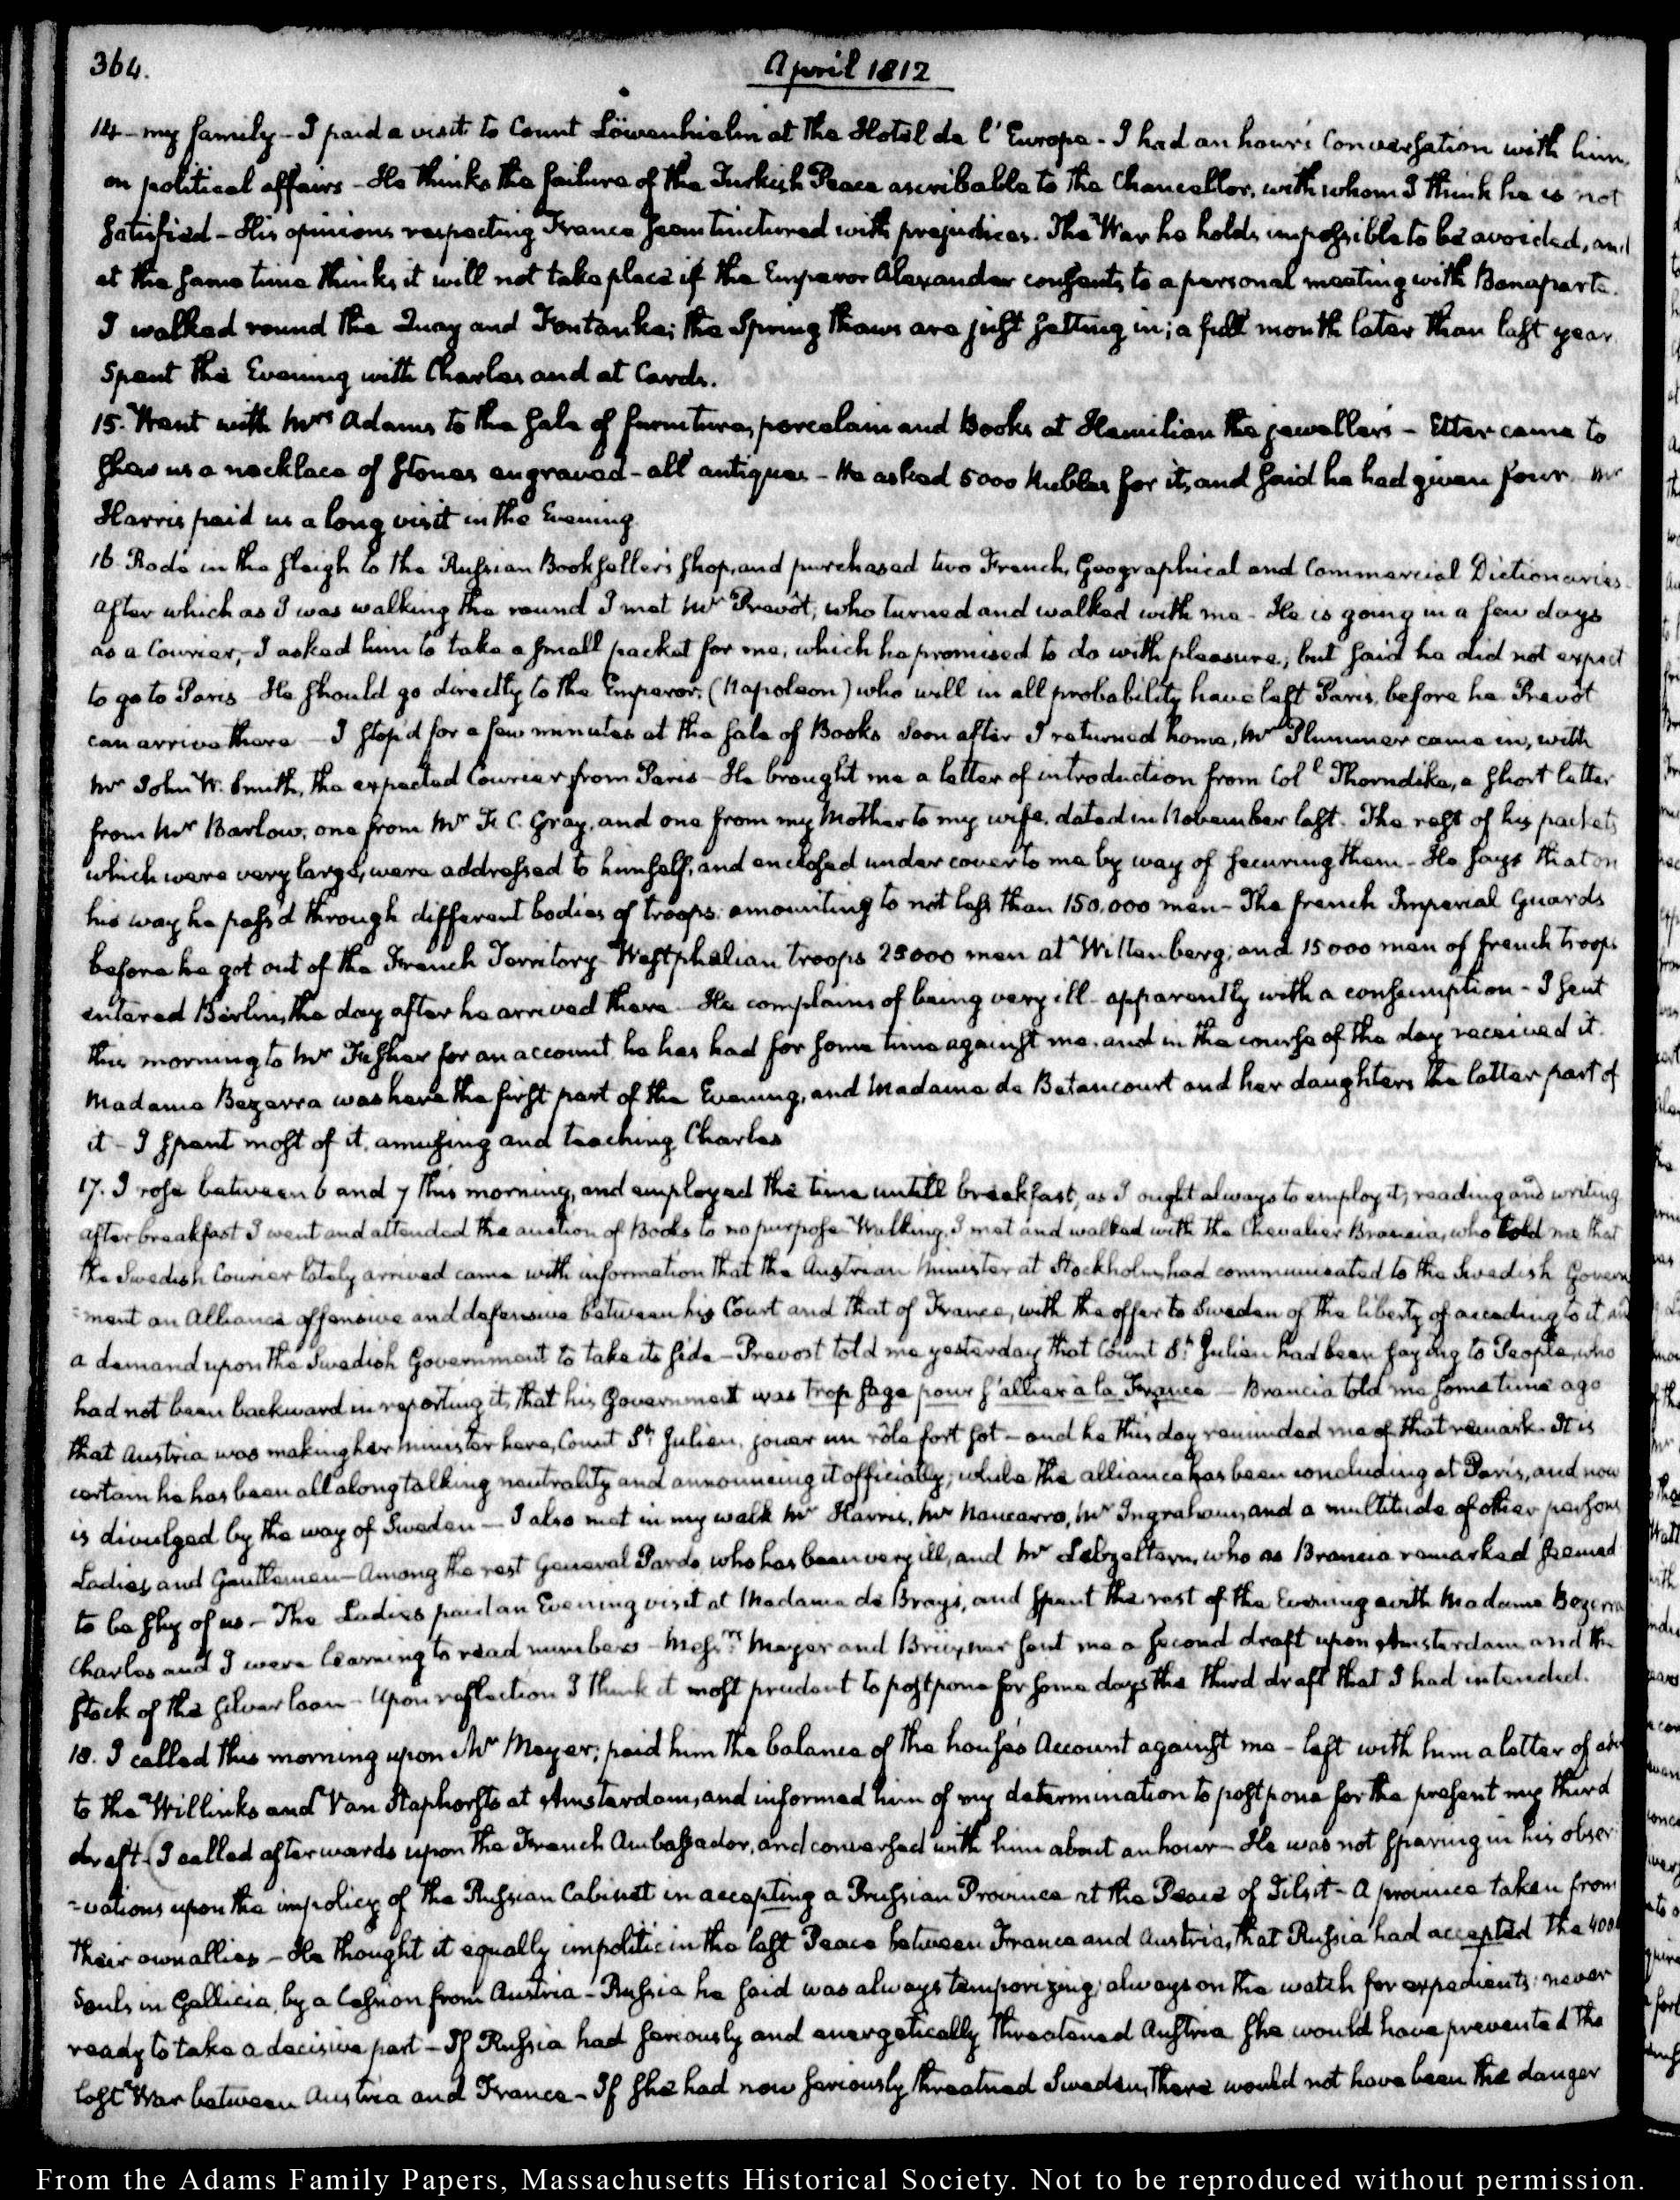 364.
April 1812
14 – my family – I paid a visit to Count Löwenhielm at the Hotel de l'Europe – I had an hour's Conversation with him,
on political affairs – He thinks the failure of the Turkish Peace ascribable to the Chancellor, with whom I think he is not
satisfied – His opinions respecting France seem tinctured with prejudices. The War he holds impossible to be avoided, and
at the same time thinks it will not take place if the Emperor Alexander consents to a personal meeting with Bonaparte.
I walked round the Quay and Fontanka; the Spring thaws are just setting in; a full month later than last year
Spent the Evening with Charles and at Cards.
15. Went with Mrs Adams to the sale of furniture, porcelain and Books at Hemilian the jeweller's – Etter came to
shew us a necklace of stones engraved – all antiques – He asked 5000 Rubles for it, and said he had given four. Mr
Harris paid us a long visit in the Evening
16. Rode in the sleigh to the Russian Bookseller's shop, and purchased two French, Geographical and Commercial Dictionaries.
after which as I was walking the round I met Mr Prevôt, who turned and walked with me – He is going in a few days
as a Courier, I asked him to take a small packet for me, which he promised to do with pleasure; but said he did not expect
to go to Paris – He should go directly to the Emperor (Napoleon) who will in all probability have left Paris, before he Prevôt
can arrive there – I stop'd for a few minutes at the sale of Books Soon after I returned home, Mr Plummer came in, with
Mr John W. Smith, the expected Courier from Paris – He brought me a letter of introduction from Coll Thorndike, a short letter
from Mr Barlow, one from Mr F. C. Gray, and one from my Mother to my wife, dated in November last. The rest of his packets
which were very large, were addressed to himself, and enclosed under cover to me by way of securing them – He says that on
his way he pass'd through different bodies of troops, amounting to not less than 150,000 men – The french Imperial Guards
before he got out of the French Territory – Westphalian troops 25000 men at Wittenberg; and 15000 men of french troops
entered Berlin, the day after he arrived there – He complains of being very ill – apparently with a consumption – I sent
this morning to Mr Fisher for an account he has had for some time against me, and in the course of the day received it.
Madame Bezerra was here the first part of the Evening, and Madame de Betancourt and her daughters the latter part of
it – I spent most of it, amusing and teaching Charles
17. I rose between 6 and 7 this morning, and employed the time untill breakfast, as I ought always to employ it, reading and writing
after breakfast I went and attended the auction of Books to no purpose Walking, I met and walked with the Chevalier Brancia, who told me that
the Swedish Courier lately arrived came with information that the Austrian Minister at Stockholm, had communicated to the Swedish Govern
=ment an Alliance offensive and defensive between his Court and that of France, with the offer to Sweden of the liberty of acceding to it and
a demand upon the Swedish Government to take its side – Prevost told me yesterday that Count St Julien had been saying to People, who
had not been backward in reporting it, that his Government was trop sage pour s'allier à la France – Brancia told me some time ago
that Austria was making her minister here, Count St Julien, jouer un rôle fort sot – and he this day reminded me of that remark. It is
certain he has been all along talking neutrality and announcing it officially; while the alliance has been concluding at Paris, and now
is divulged by the way of Sweden – I also met in my walk Mr Harris, Mr Navarro, Mr Ingraham, and a multitude of other persons
Ladies and Gentlemen – Among the rest General Pardo, who has been very ill, and Mr Lebzeltern, who as Brancia remarked seemed
to be shy of us – The Ladies paid an Evening visit at Madame de Bray's, and spent the rest of the Evening with Madame Bezerra
Charles and I were learning to read numbers – Messrs Meyer and Brüxner sent me a second draft upon Amsterdam, and the
stock of the silver loan – Upon reflection I think it most prudent to postpone for some days the third draft that I had intended.
18. I called this morning upon Mr Meyer; paid him the balance of the house's Account against me – left with him a letter of
to the Willinks and Van Staphorsts at Amsterdam, and informed him of my determination to postpone for the present my third
draft. (I called afterwards upon the French Ambassador, and conversed with him about an hour – He was not sparing in his obser
=vations upon the impolicy of the Russian Cabinet in accepting a Prussian Province at the Peace of Tilsit – A province taken from
their own allies – He thought it equally impolitic in the last Peace between France and Austria, that Russia had accepted the 400
Souls in Gallicia, by a Cession from Austria – Russia he said was always temporizing; always on the watch for expedients; never
ready to take a decisive part – If Russia had seriously and energetically threatened Austria she would have prevented the
last War between Austria and France – If she had now seriously threatned Sweden, there would not have been the danger
From the Adams Family Papers, Massachusetts Historical Society. Not to be reproduced without permission.